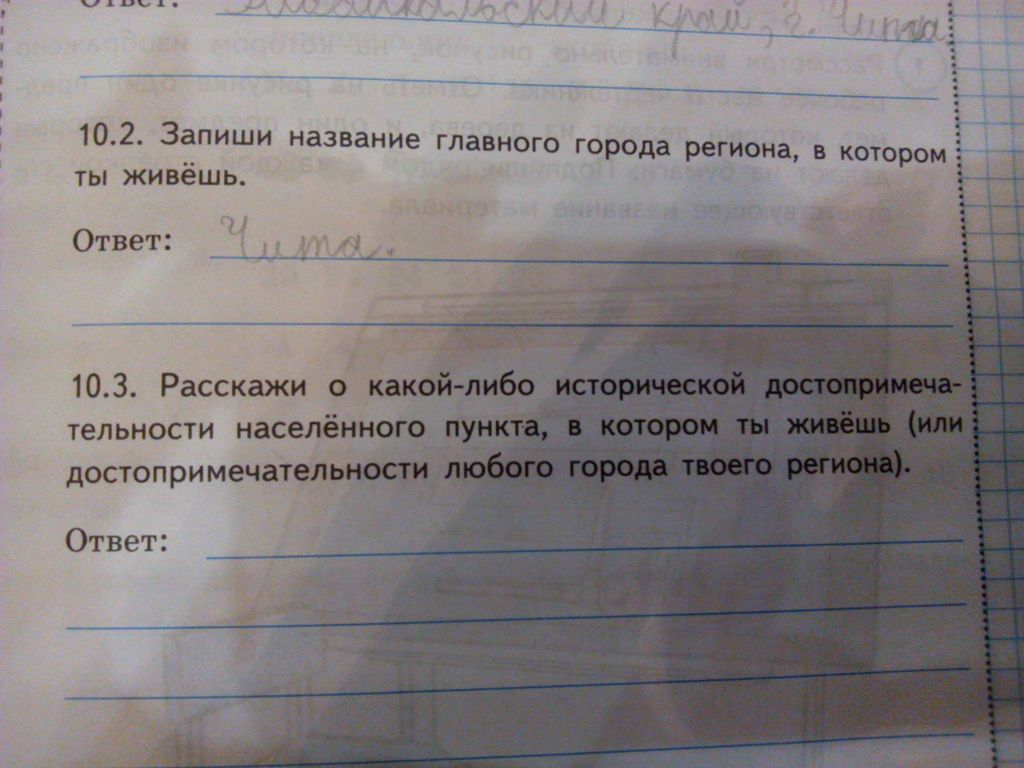 Ответ: Забайкальский край, г. Чита
10.2. Запиши название главного города региона, в котором
ты живёшь.
Ответ: Чита.
10.3. Расскажи о какой-либо исторической достопримеча-
тельности населённого пункта, в котором ты живёшь (или
достопримечательности любого города твоего региона).
Ответ: